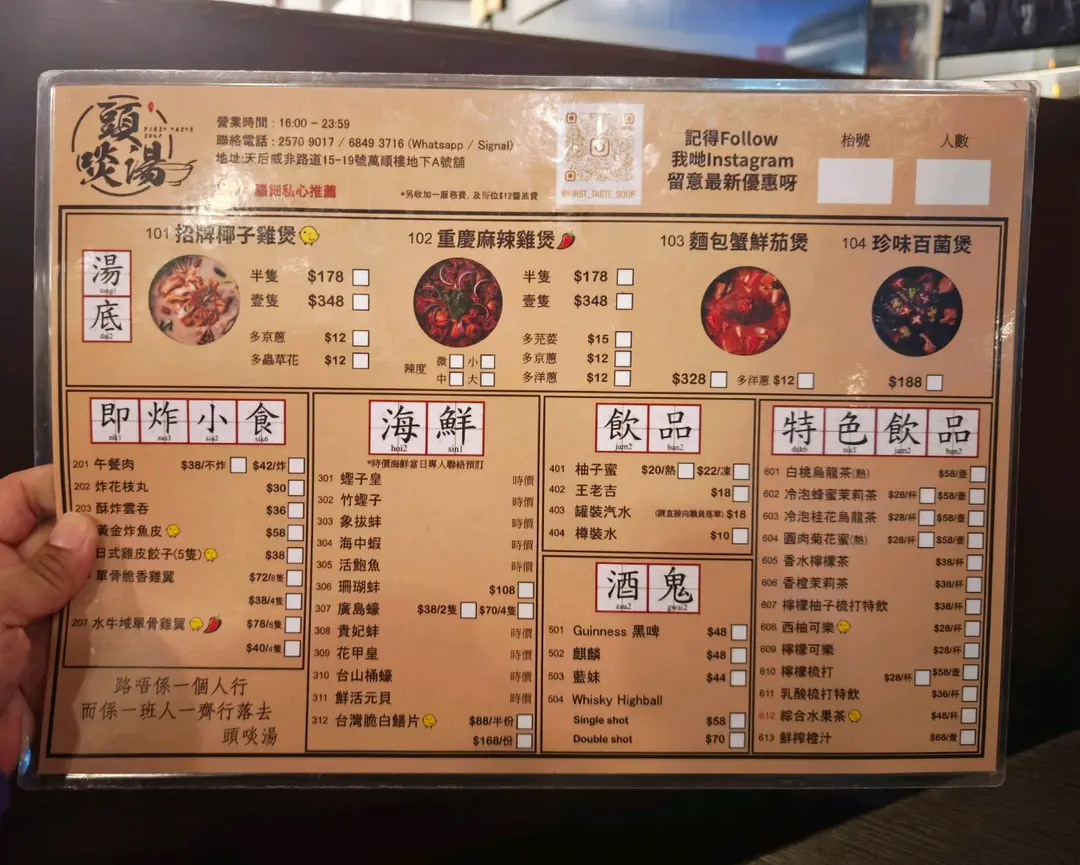 頭啖湯
FIRST TASTE SOUP
營業時間：16:00 – 23:59
聯絡電話：2570 9017 / 6849 3716 (Whatsapp / Signal)
地址:天后威非路道15-19號萬順樓地下A號舖
腦細私心推薦
*另收加一服務費, 及每位$12醬油費
@FIRST_TASTE_SOUP
記得Follow
我哋Instagram
留意最新優惠呀
枱號
人數
湯底
tong1 dai2
101 招牌椰子雞煲
半隻 $178
壹隻 $348
多京蔥 $12
多蟲草花 $12
102 重慶麻辣雞煲
半隻 $178
壹隻 $348
辣度 微 小 中 大
多芫荽 $15
多京蔥 $12
多洋蔥 $12
103 麵包蟹鮮茄煲
$328 多洋蔥 $12
104 珍味百菌煲
$188
即炸小食
zik1 zaa3 siu2 sik6
201 午餐肉 $38/不炸 $42/炸
202 炸花枝丸 $30
203 酥炸雲吞 $36
黃金炸魚皮 $58
日式雞皮餃子(5隻) $38
單骨脆香雞翼 $72/8隻
$38/4隻
207 水牛城單骨雞翼 $78/8隻
$40/4隻
路唔係一個人行
而係一班人一齊行落去
頭啖湯
海鮮
hoi2 sin1
*時價海鮮當日專人聯絡預訂
301 蟶子皇 時價
302 竹蟶子 時價
303 象拔蚌 時價
304 海中蝦 時價
305 活鮑魚 時價
306 珊瑚蚌 $108
307 廣島蠔 $38/2隻 $70/4隻
308 貴妃蚌 時價
309 花甲皇 時價
310 台山桶蠔 時價
311 鮮活元貝 時價
312 台灣脆白鱔片 $88/半份
$168/份
飲品
jam2 ban2
401 柚子蜜 $20/熱 $22/凍
402 王老吉 $18
403 罐裝汽水 (請直接向職員落單) $18
404 樽裝水 $10
酒鬼
zau2 gwai2
501 Guinness 黑啤 $48
502 麒麟 $48
503 藍妹 $44
504 Whisky Highball
Single shot $58
Double shot $70
特色飲品
dak6 sik1 jam2 ban2
601 白桃烏龍茶(熱) $58/壺
602 冷泡蜂蜜茉莉茶 $28/杯 $58/壺
603 冷泡桂花烏龍茶 $28/杯 $58/壺
604 圓肉菊花蜜(熱) $28/杯 $58/壺
605 香水檸檬茶 $38/杯
606 香橙茉莉茶 $38/杯
607 檸檬柚子梳打特飲 $38/杯
608 西柚可樂 $28/杯
609 檸檬可樂 $28/杯
610 檸檬梳打 $28/杯 $58/壺
611 乳酸梳打特飲 $36/杯
612 綜合水果茶 $48/杯
613 鮮榨橙汁 $68/壺